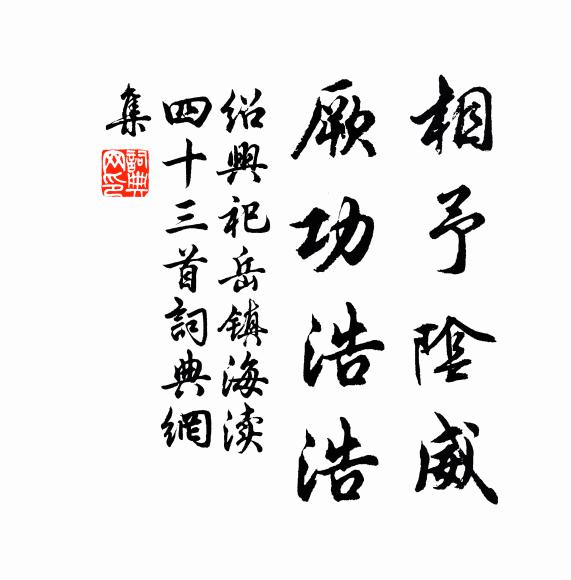 相予陰威
厥功浩浩
紹興祀岳鎮海渎
四十三首詞典網
集
詞典網印